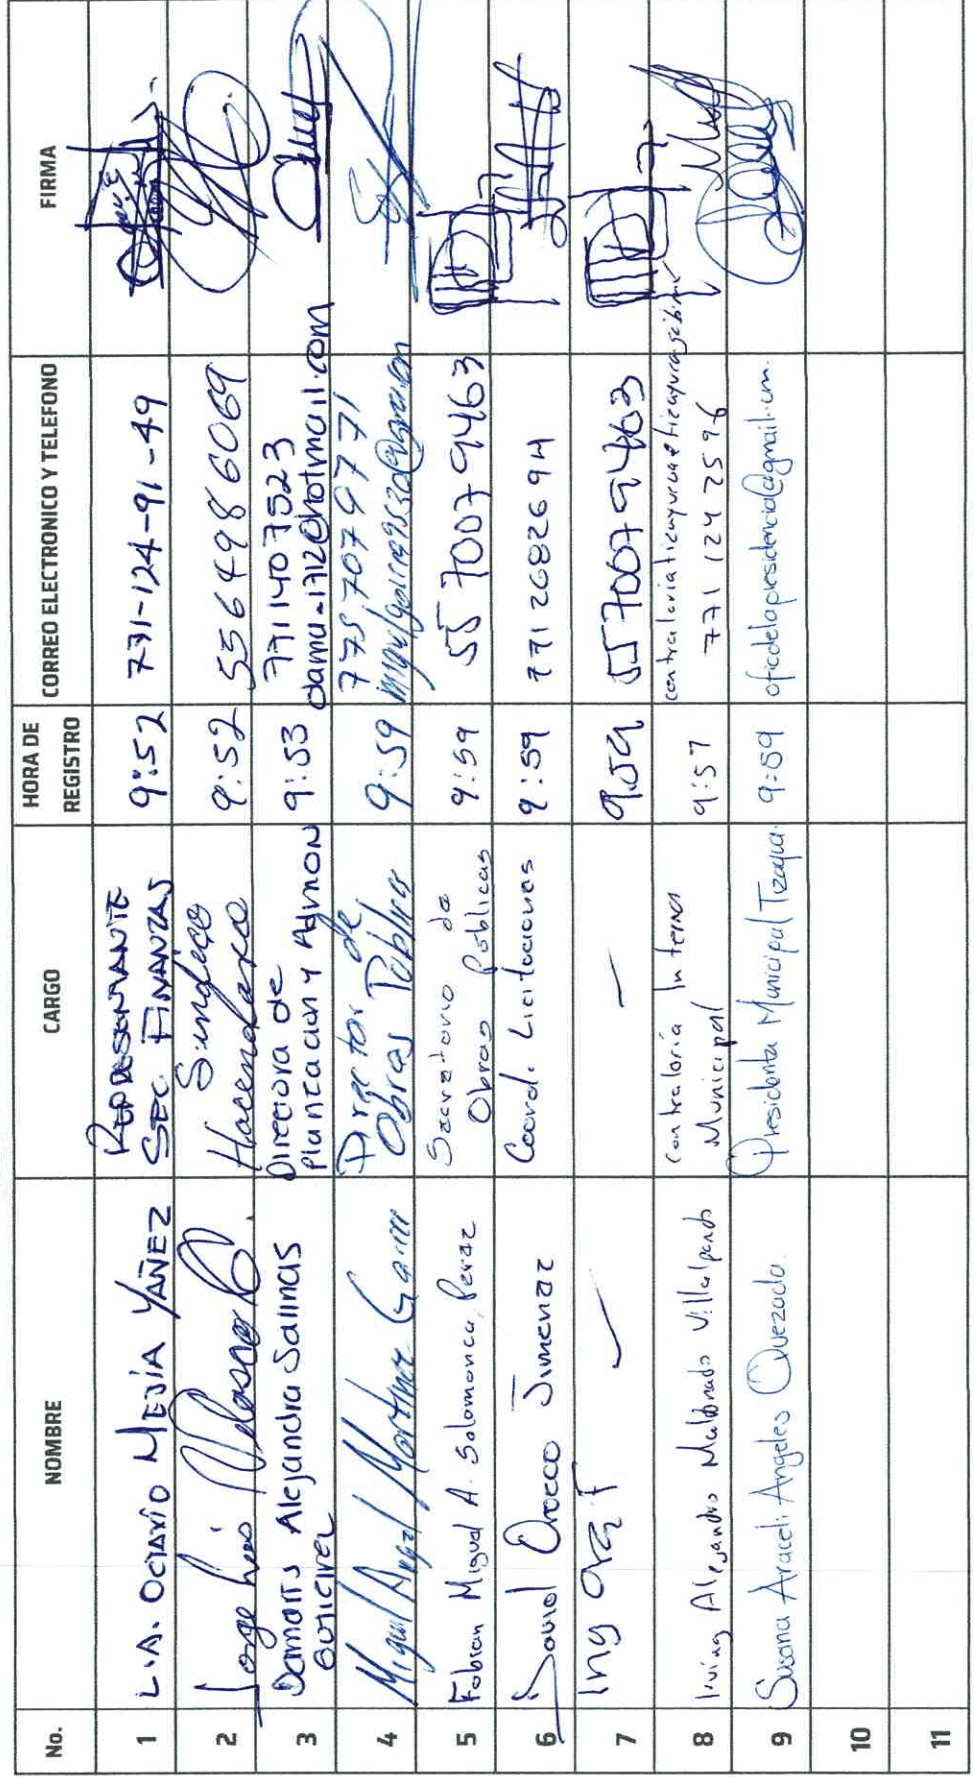 No.
NOMBRE
CARGO
HORA DE
REGISTRO
CORREO ELECTRONICO Y TELEFONO
FIRMA
1
L.A. OCTAVIO MEJÍA YAÑEZ
REPRESENTANTE
SEC. FINANZAS
9:52
771-124-91-49
2
Jorge Luis Velasco
Sindico
Hacendario
9:52
5564986069
3
Damaris Alejandra Salinas
Gutierrez
Directora de
Planeacion y Admon
9:53
7711407523
damu.1712@hotmail.com
4
Miguel Angel Martinez
Director de
Obras Publicas
9:59
775 707 9771
5
Fabian Miguel A. Salamanca Perez
Secretario de
Obras Publicas
9:59
55 7007 9463
6
David Orozco Jimenez
Coord. Licitaciones
9:59
771 2682694
7
Ing
—
9:59
5570079463
8
Irving Alejandro Maldonado Villalpando
Contraloría Interna
Municipal
9:57
771 124 2596
9
Susana Araceli Angeles Quezada.
Presidenta Municipal Tizayuca.
9:59
oficdelapresidencia@gmail.com.
10
11